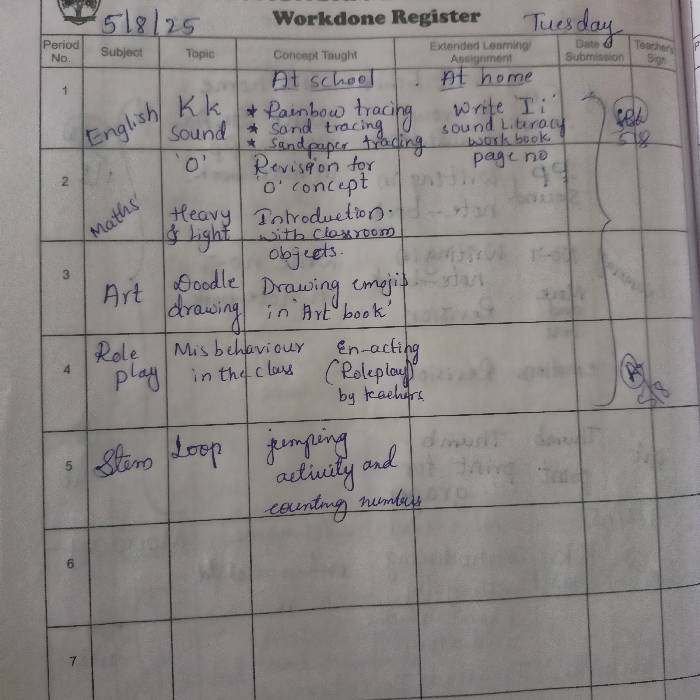 Workdone Register
5/8/25
Tuesday
Period No.
Subject
Topic
Concept Taught
Extended Learning/ Assignment
Date of Submission
Teacher's Sign
At school
At home
1
English
Kk
sound
* Rainbow tracing
* Sand tracing
* Sandpaper tracing
Write Ii
sound Literacy
work book
page no
99
5/8
2
Maths
'0'
Revision for
'0' concept
Heavy
& Light
Introduction
with classroom
objects.
3
Art
Doodle
drawing
Drawing emojis
in 'Art book'
4
Role
play
Misbehaviour
in the class
En-acting
(Roleplay)
by teachers
5
Stem
Loop
jumping
activity and
counting numbers
6
7